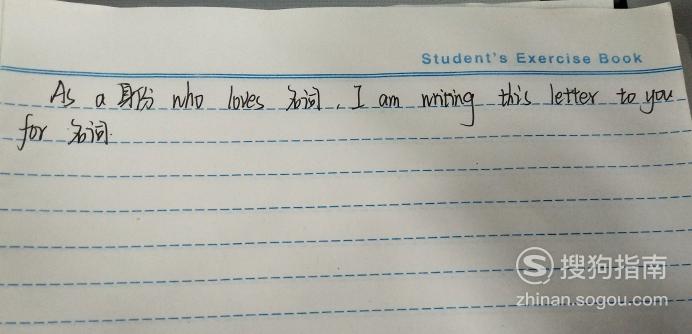 Student's Exercise Book
As a 身份 who loves 名词, I am writing this letter to you
for 名词.
搜狗指南
zhinan.sogou.com